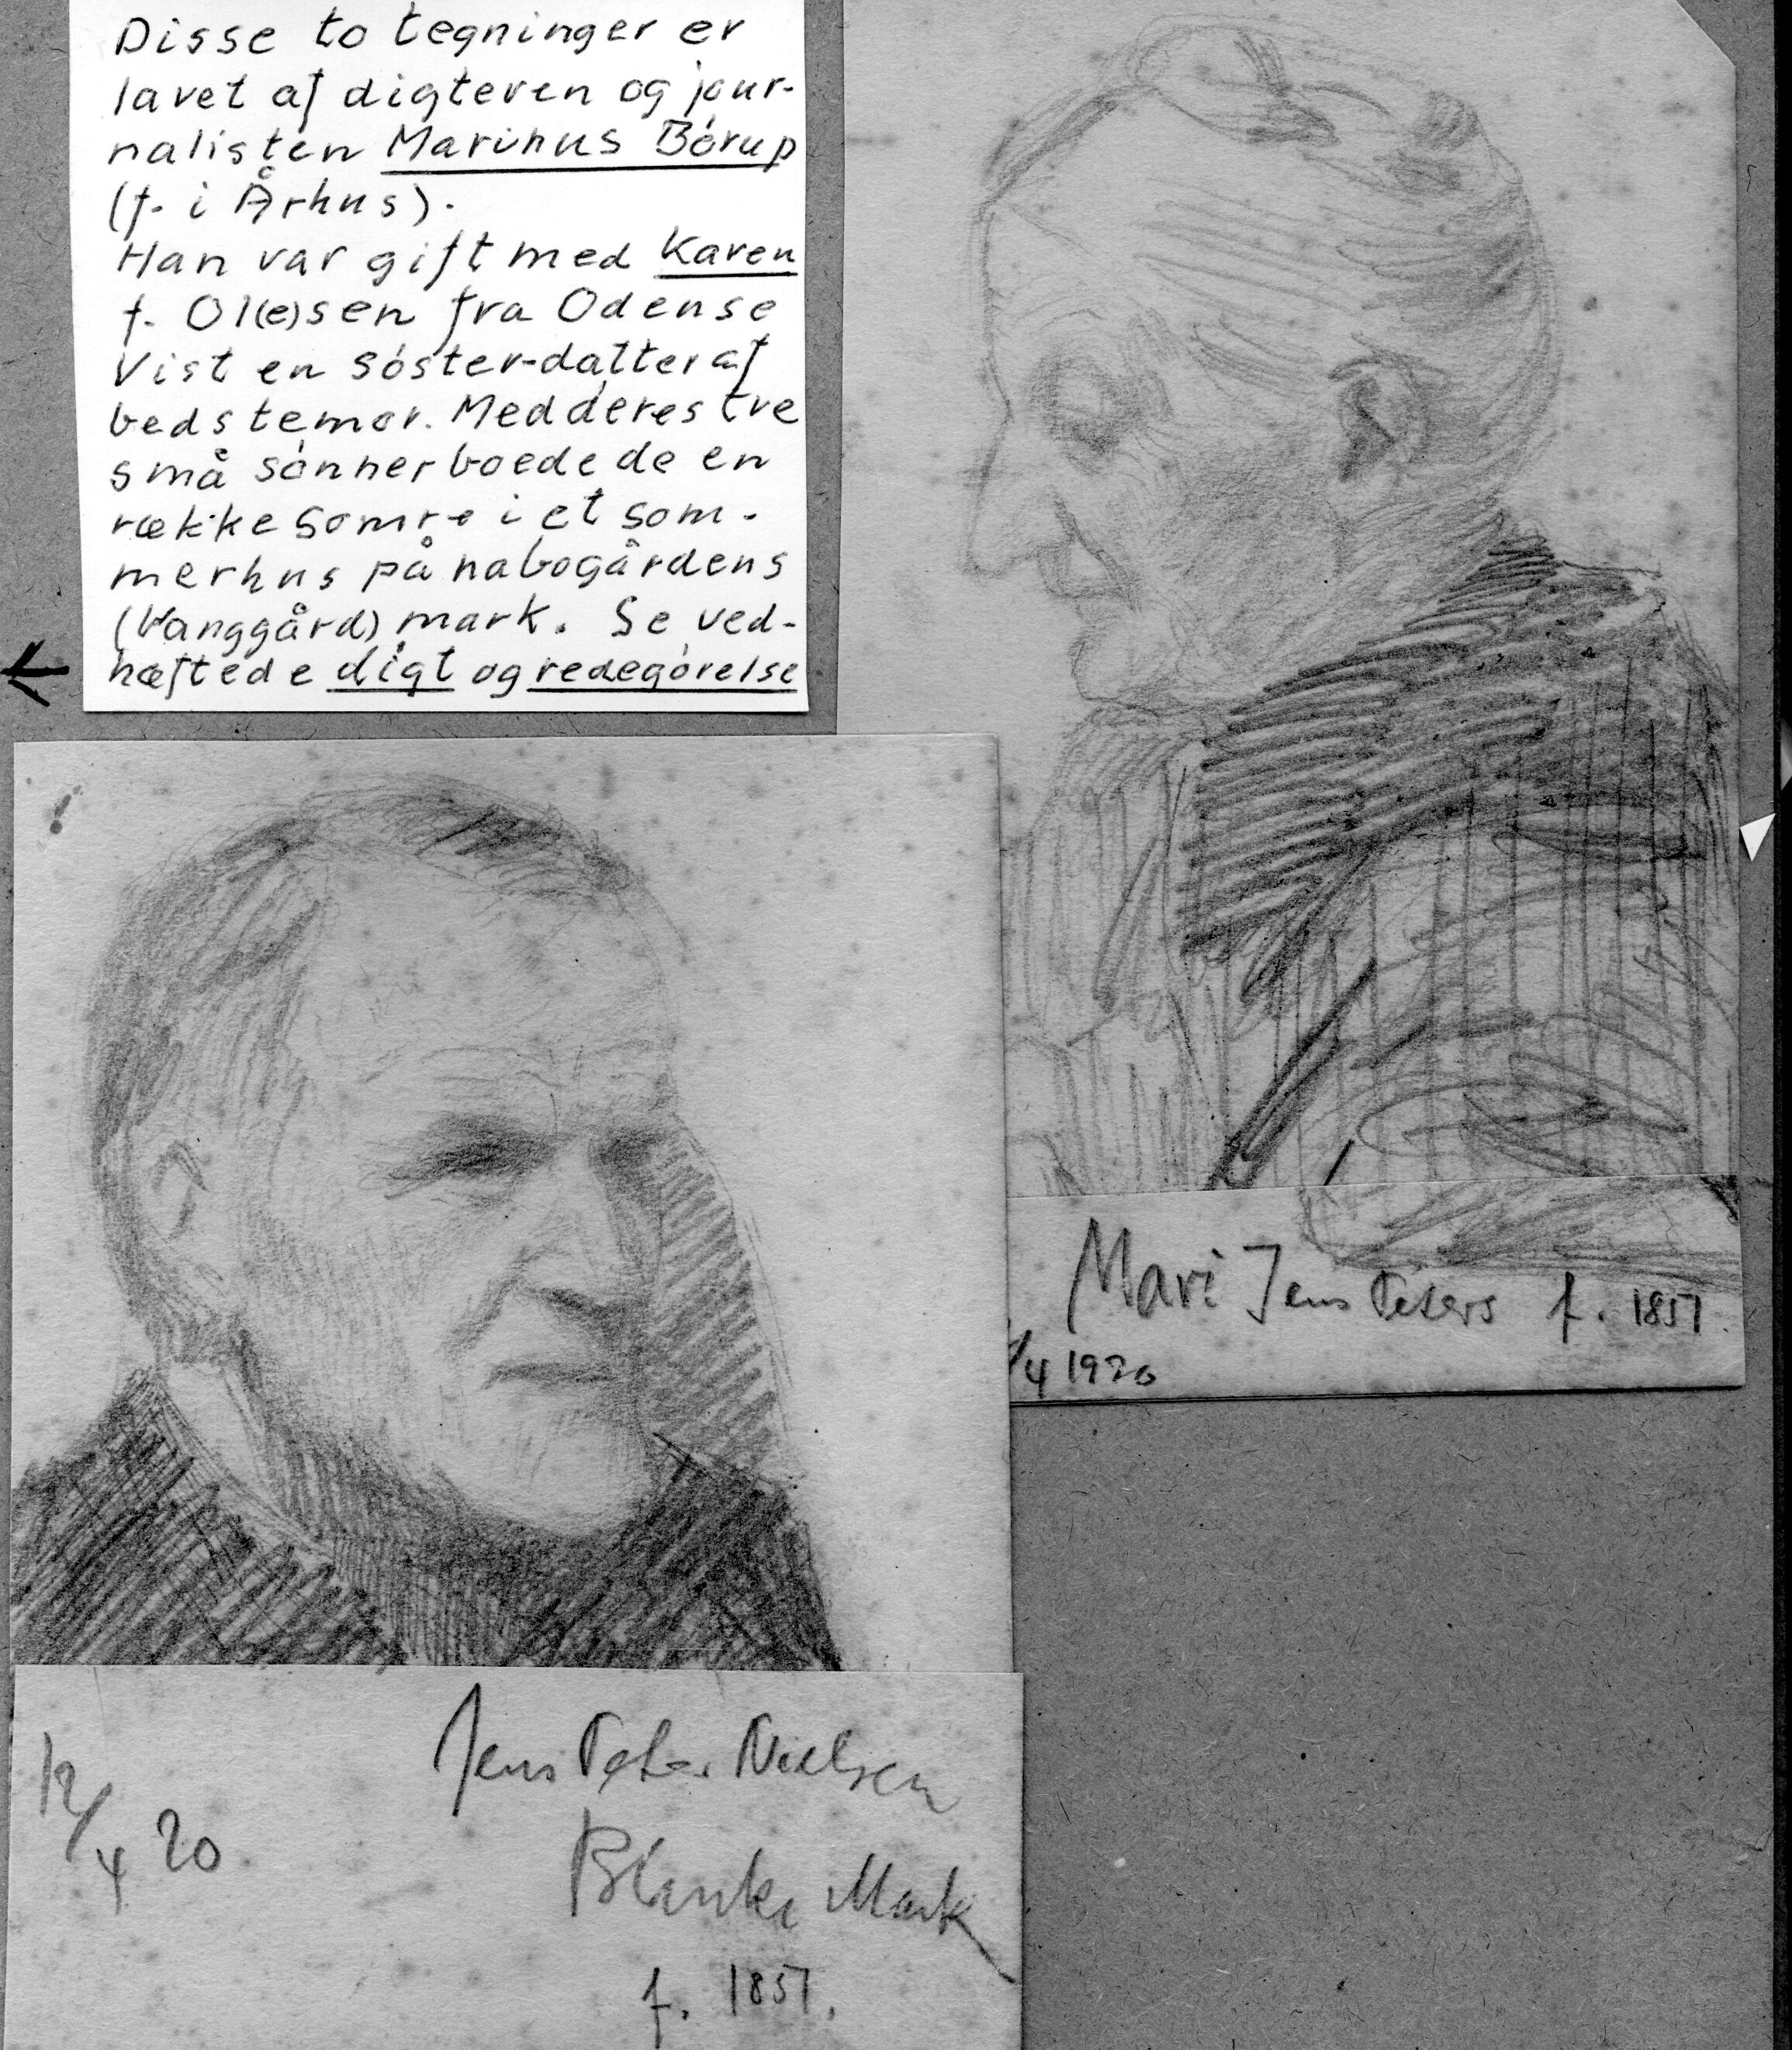 Disse to tegninger er
lavet af digteren og jour-
nalisten Marinus Børup
(f. i Århus).
Han var gift med Karen
f. Ol(e)sen fra Odense
Vist en søster-datter af
bedstemor. Med deres tre
små sønner boede de en
række somre i et som-
merhus på nabogårdens
(Vanggård) mark. Se ved-
hæftede digt og redegørelse
Mari Jens Peters f. 1851.
/4 1920
Jens Peter Nielsen
12/4 20
Blanke Mark
f. 1851.